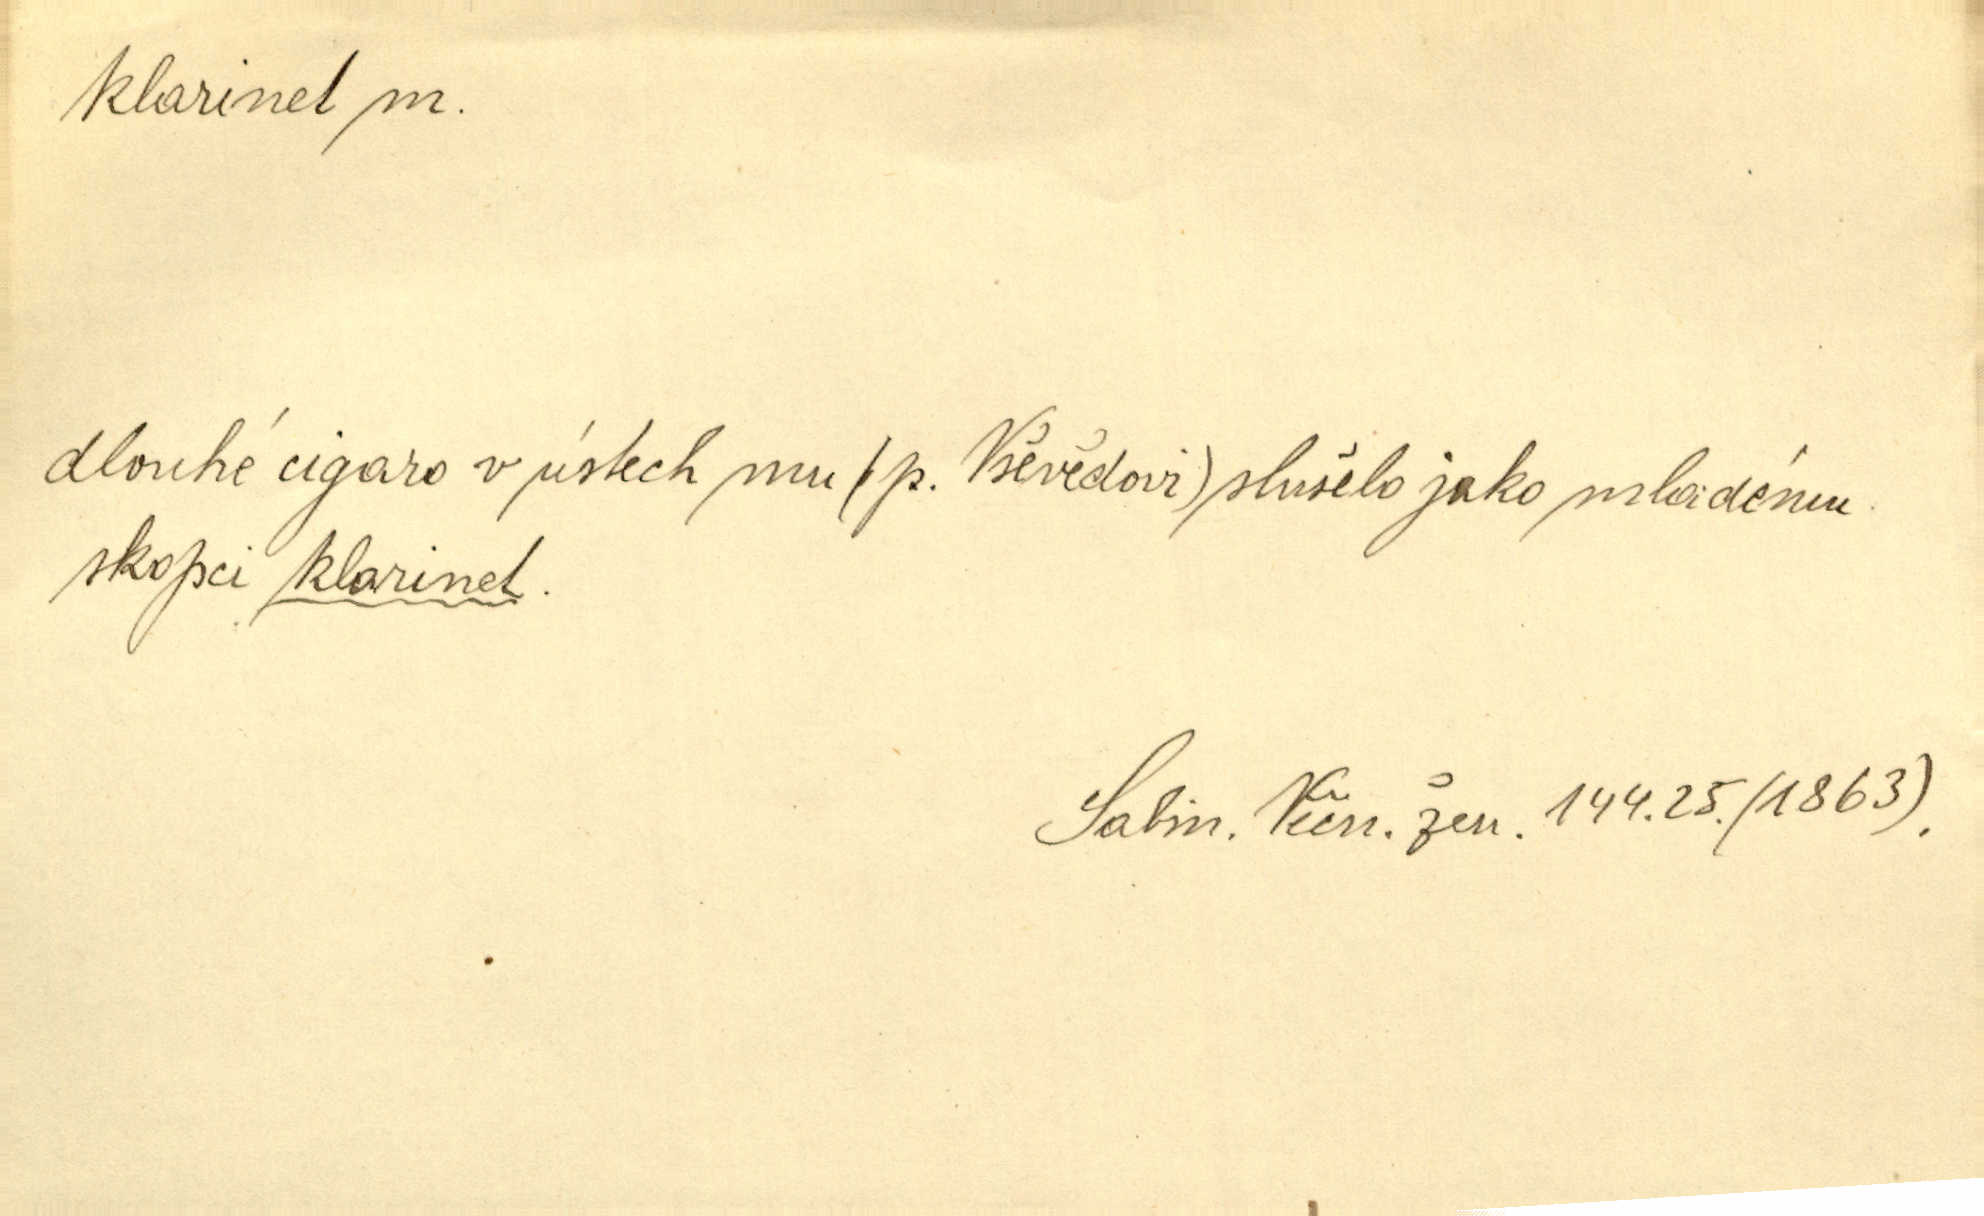 klarinet m.
dlouhé cigaro v ústech mu (p. Vševědovi) slušelo jako mladému
skopci klarinet.
Sabin. Věčn. žen. 144.25. (1863).